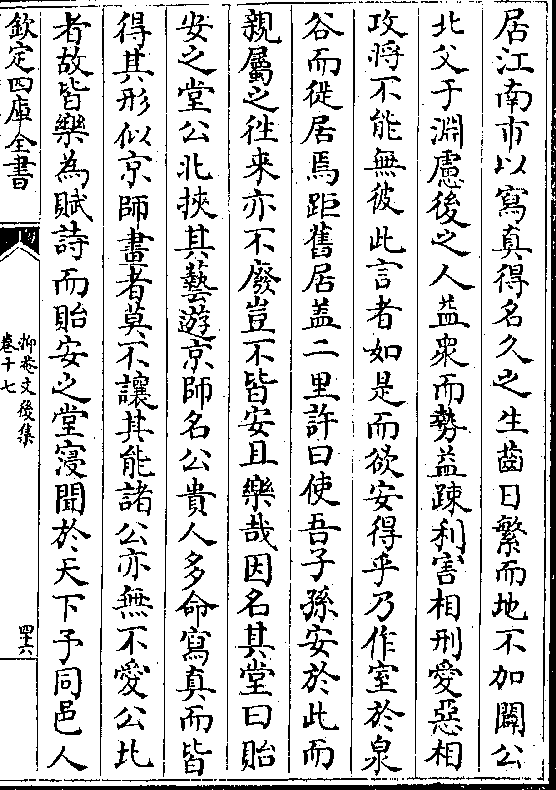 居江南市以寫真得名久之生齒日繁而地不加闢公
北父于淵慮後之人益衆而勢益踈利害相刑愛惡相
攻將不能無彼此言者如是而欲安得乎乃作室於泉
谷而徙居焉距舊居盖二里許曰使吾子孫安於此而
親屬之徃来亦不廢豈不皆安且樂哉因名其堂曰貽
安之堂公北挾其藝遊京師名公貴人多命寫真而皆
得其形似京師畫者莫不讓其能諸公亦無不愛公北
者故皆樂為賦詩而貽安之堂寖聞於天下予同邑人
欽定四庫全書
抑菴文後集
卷十七
四十六